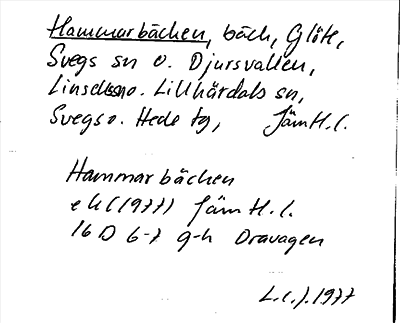 Hammarbäcken, bäck, Glöte,
Svegs sn o. Djursvallen,
Linsells o. Lillhärdals sn,
Svegs o. Hede tg, Jämtl. l.
Hammarbäcken
ek (1977) Jämtl. l.
16 D 6-7 g-h Dravagen
L.c.). 1977